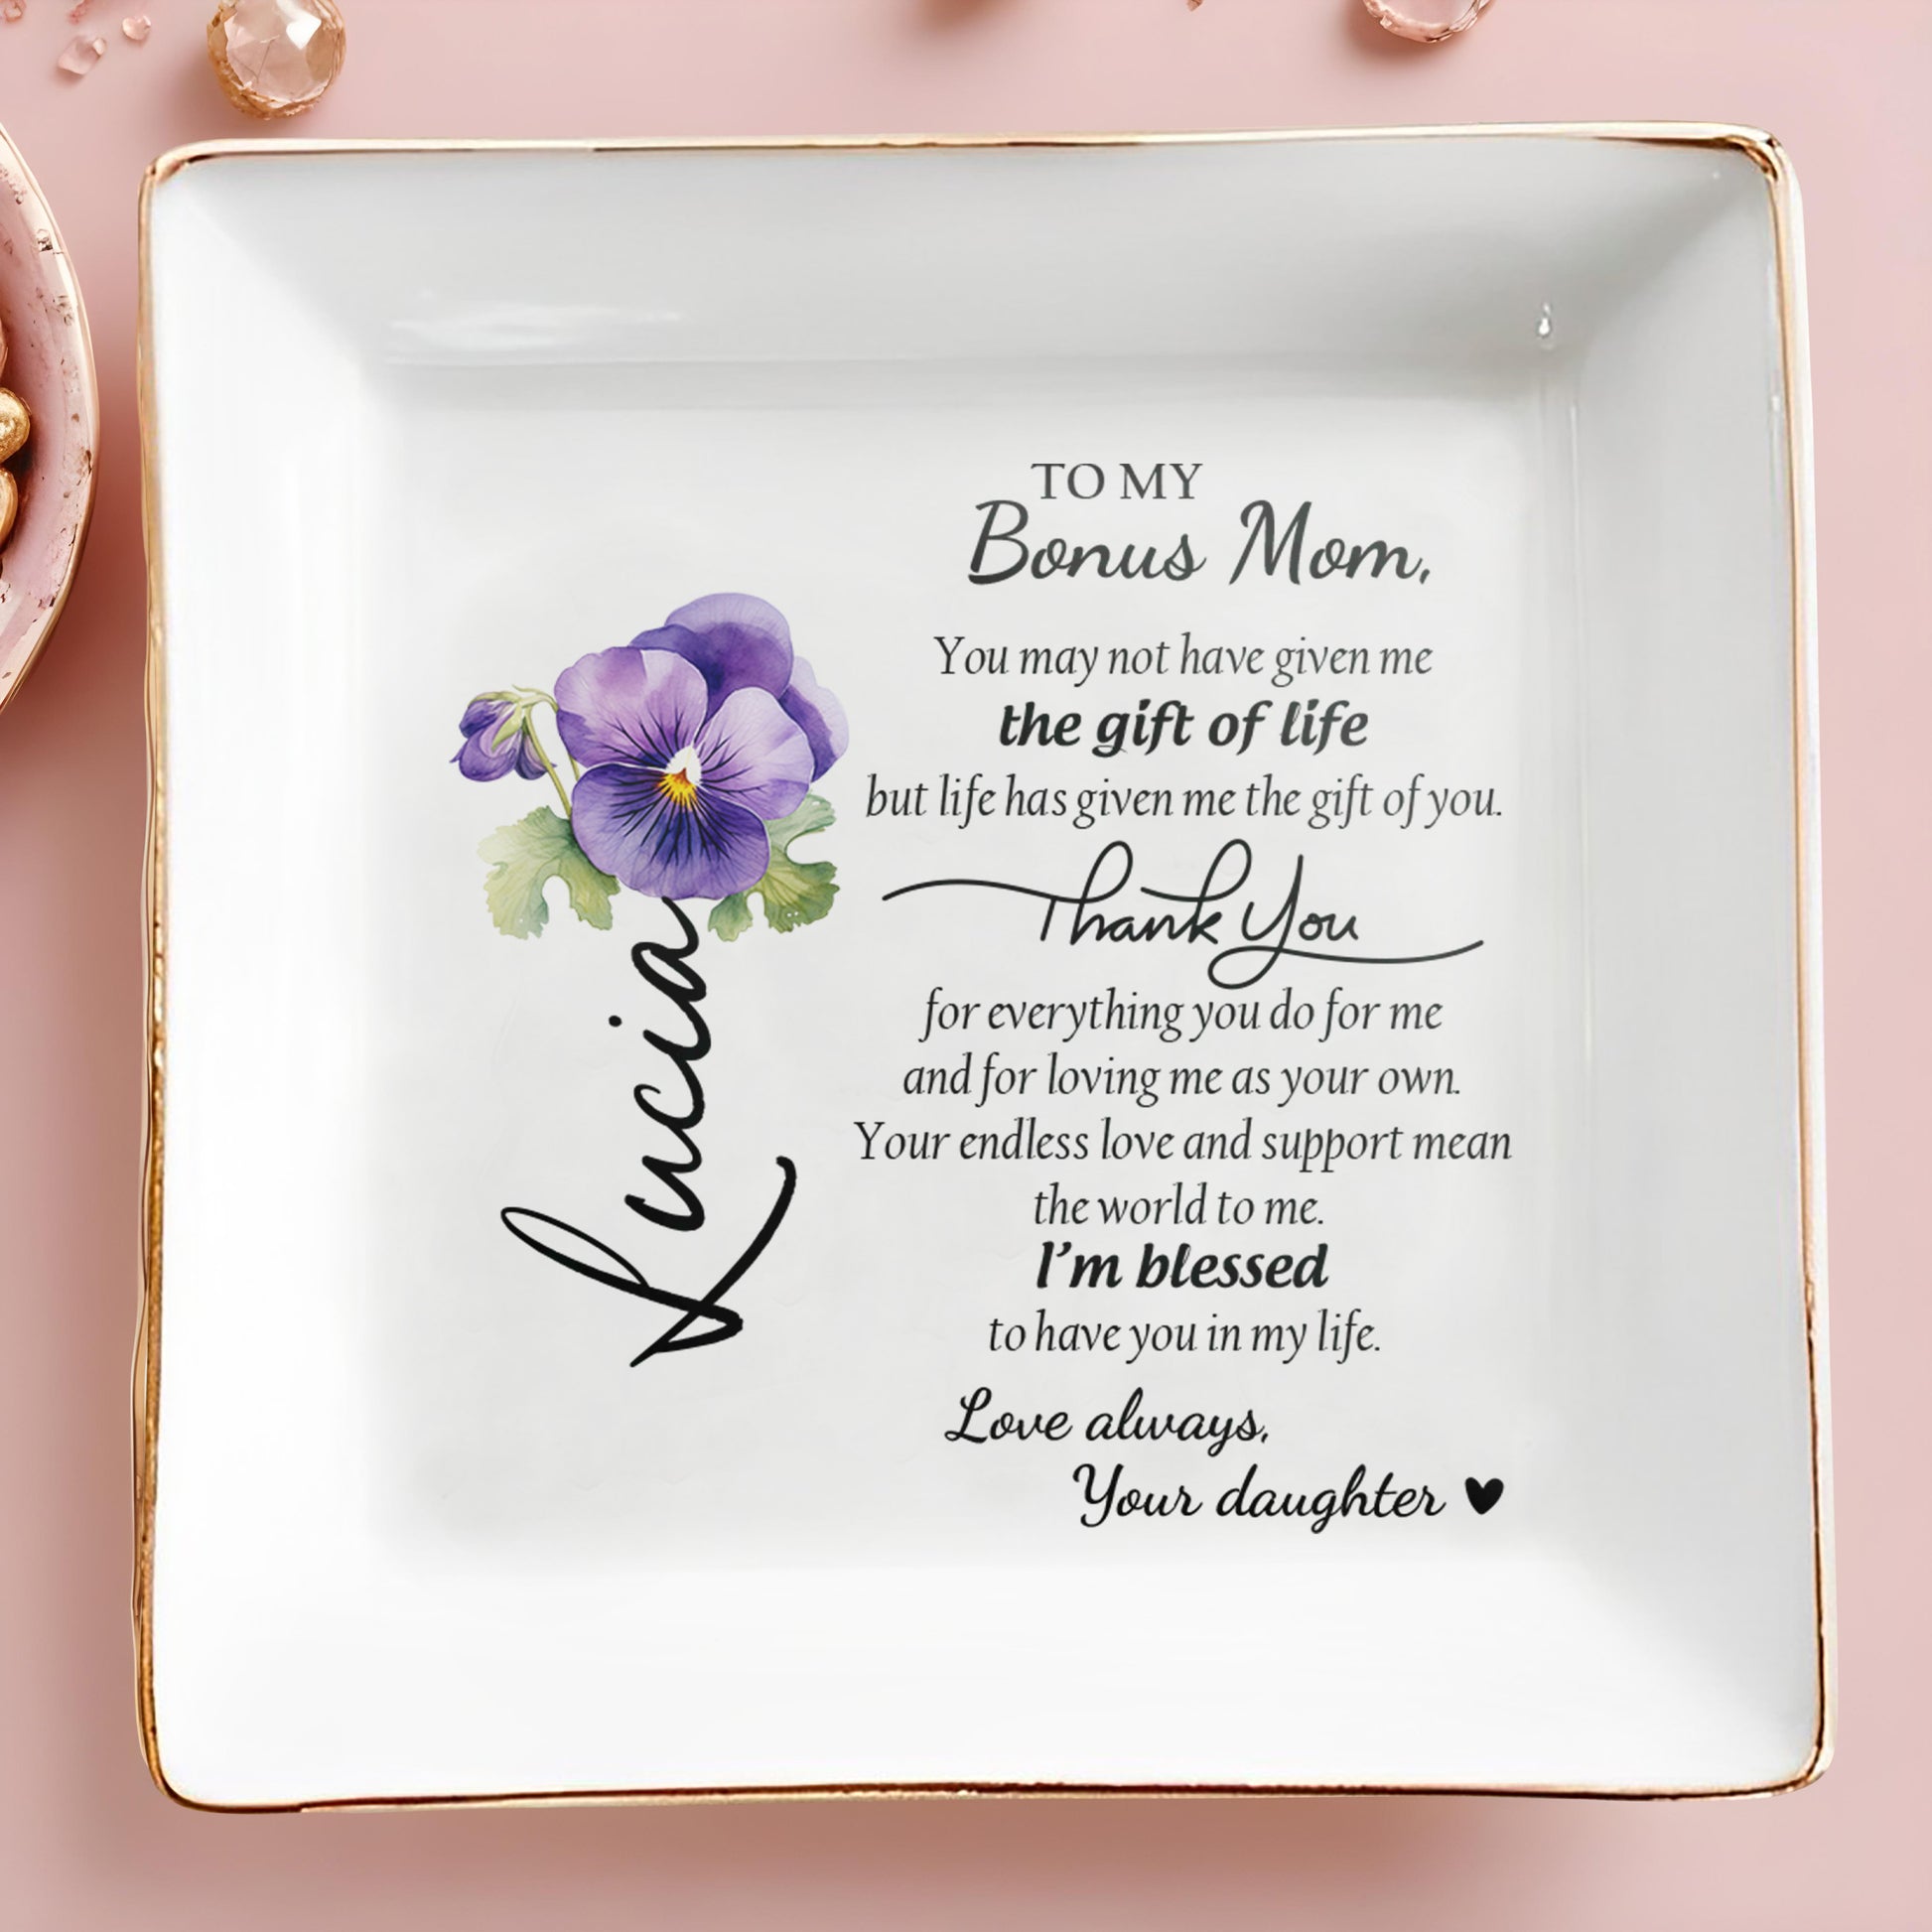 Lucia
TO MY
Bonus Mom,
You may not have given me
the gift of life
but life has given me the gift of you.
Thank You
for everything you do for me
and for loving me as your own.
Your endless love and support mean
the world to me.
I'm blessed
to have you in my life.
Love always,
Your daughter ♥